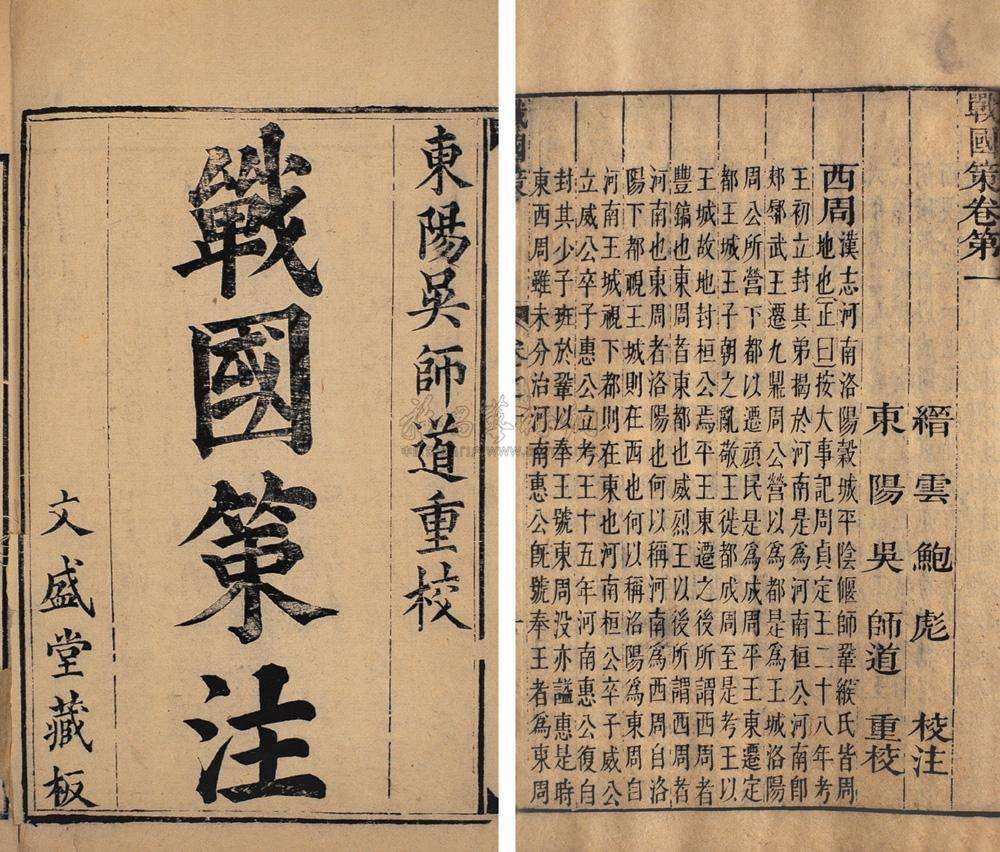 東陽吳師道重校
戰國策注
文盛堂藏板
戰國策卷第一
縉雲鮑彪校注
東陽吳師道重校
西周漢志河南洛陽穀城平陰偃師鞏緱氏皆周
地也正曰按大事記周貞定王二十八年考
王初立封其弟揭於河南是為河南桓公河南即
郟鄏武王遷九鼎周公營以為都是為王城洛陽
周公所營下都以遷頑民是為成周平王東遷定
都王城王子朝之亂敬王徙都成周至是考王以
王城故地封桓公焉平王東遷之後所謂西周者
豐鎬也東周者東都也威烈王以後所謂西周者
河南也東周者洛陽也何以稱河南為西周自洛
陽下都視王城則在西也何以稱洛陽為東周自
河南王城視下都則在東也河南桓公卒子威公
立威公卒子惠公立考王十五年河南惠公復自
封其少子班於鞏以奉王號東周没亦謚惠是時
東西周雖未分治河南惠公既號奉王者為東周